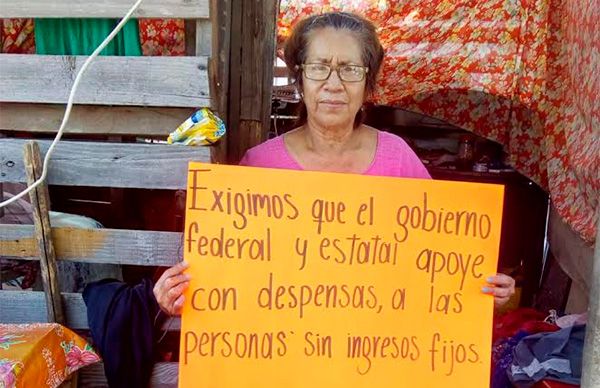 Exigimos que el gobierno
federal y estatal apoye
con despensas, a las
personas sin ingresos fijos.